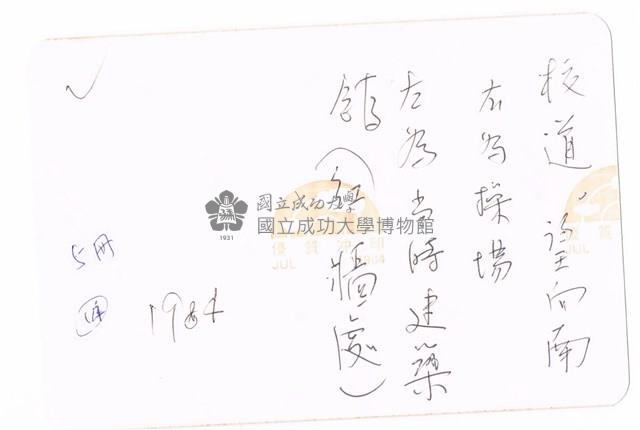 校道，望向南
右為操場
左為當時建築
館（紅牆處）
1984
5冊
國立成功大學
國立成功大學博物館
1931
優質沖印
JUL 1984